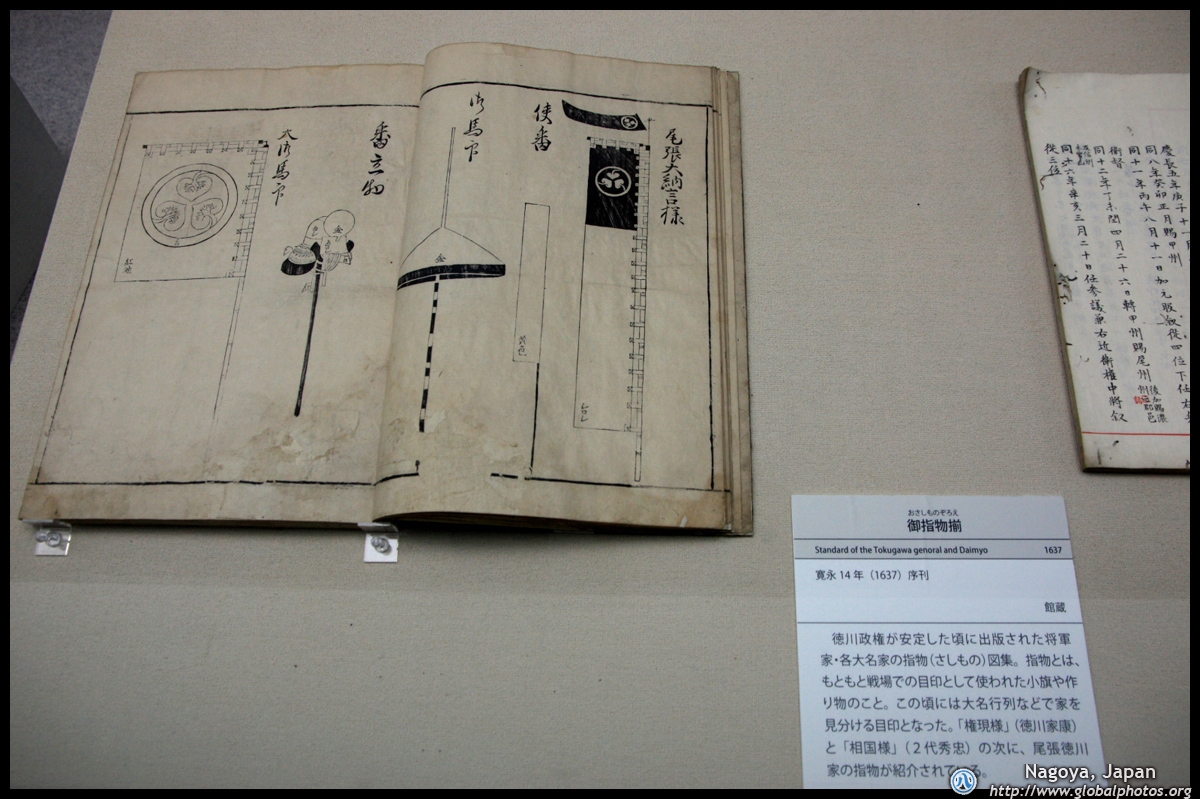 尾張大納言様
使番
御馬印
金
黄色
番立物
金
大御馬印
紅地
慶長五年庚子十一
同八年癸卯正月賜甲州
同十一年丙午八月十一日加元服叙従四位下任右兵
衛督
同十二年丁未閏四月二十六日轉甲州賜尾州
後加賜濃
同十六年辛亥三月二十日任参議兼右近衛権中将叙
従三位
おさしものぞろえ
御指物揃
Standard of the Tokugawa genoral and Daimyo 1637
寛永 14 年（1637）序刊
館蔵
徳川政権が安定した頃に出版された将軍
家・各大名家の指物（さしもの）図集。指物とは、
もともと戦場での目印として使われた小旗や作
り物のこと。この頃には大名行列などで家を
見分ける目印となった。「権現様」（徳川家康）
と「相国様」（２代秀忠）の次に、尾張徳川
家の指物が紹介されている。
Nagoya, Japan
http://www.globalphotos.org